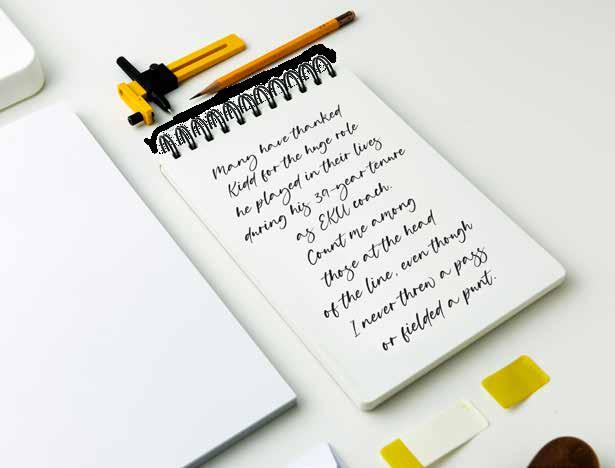 Many have thanked
Kidd for the huge role
he played in their lives
during his 39-year tenure
as EKU coach.
Count me among
those at the head
of the line, even though
I never threw a pass
or fielded a punt.